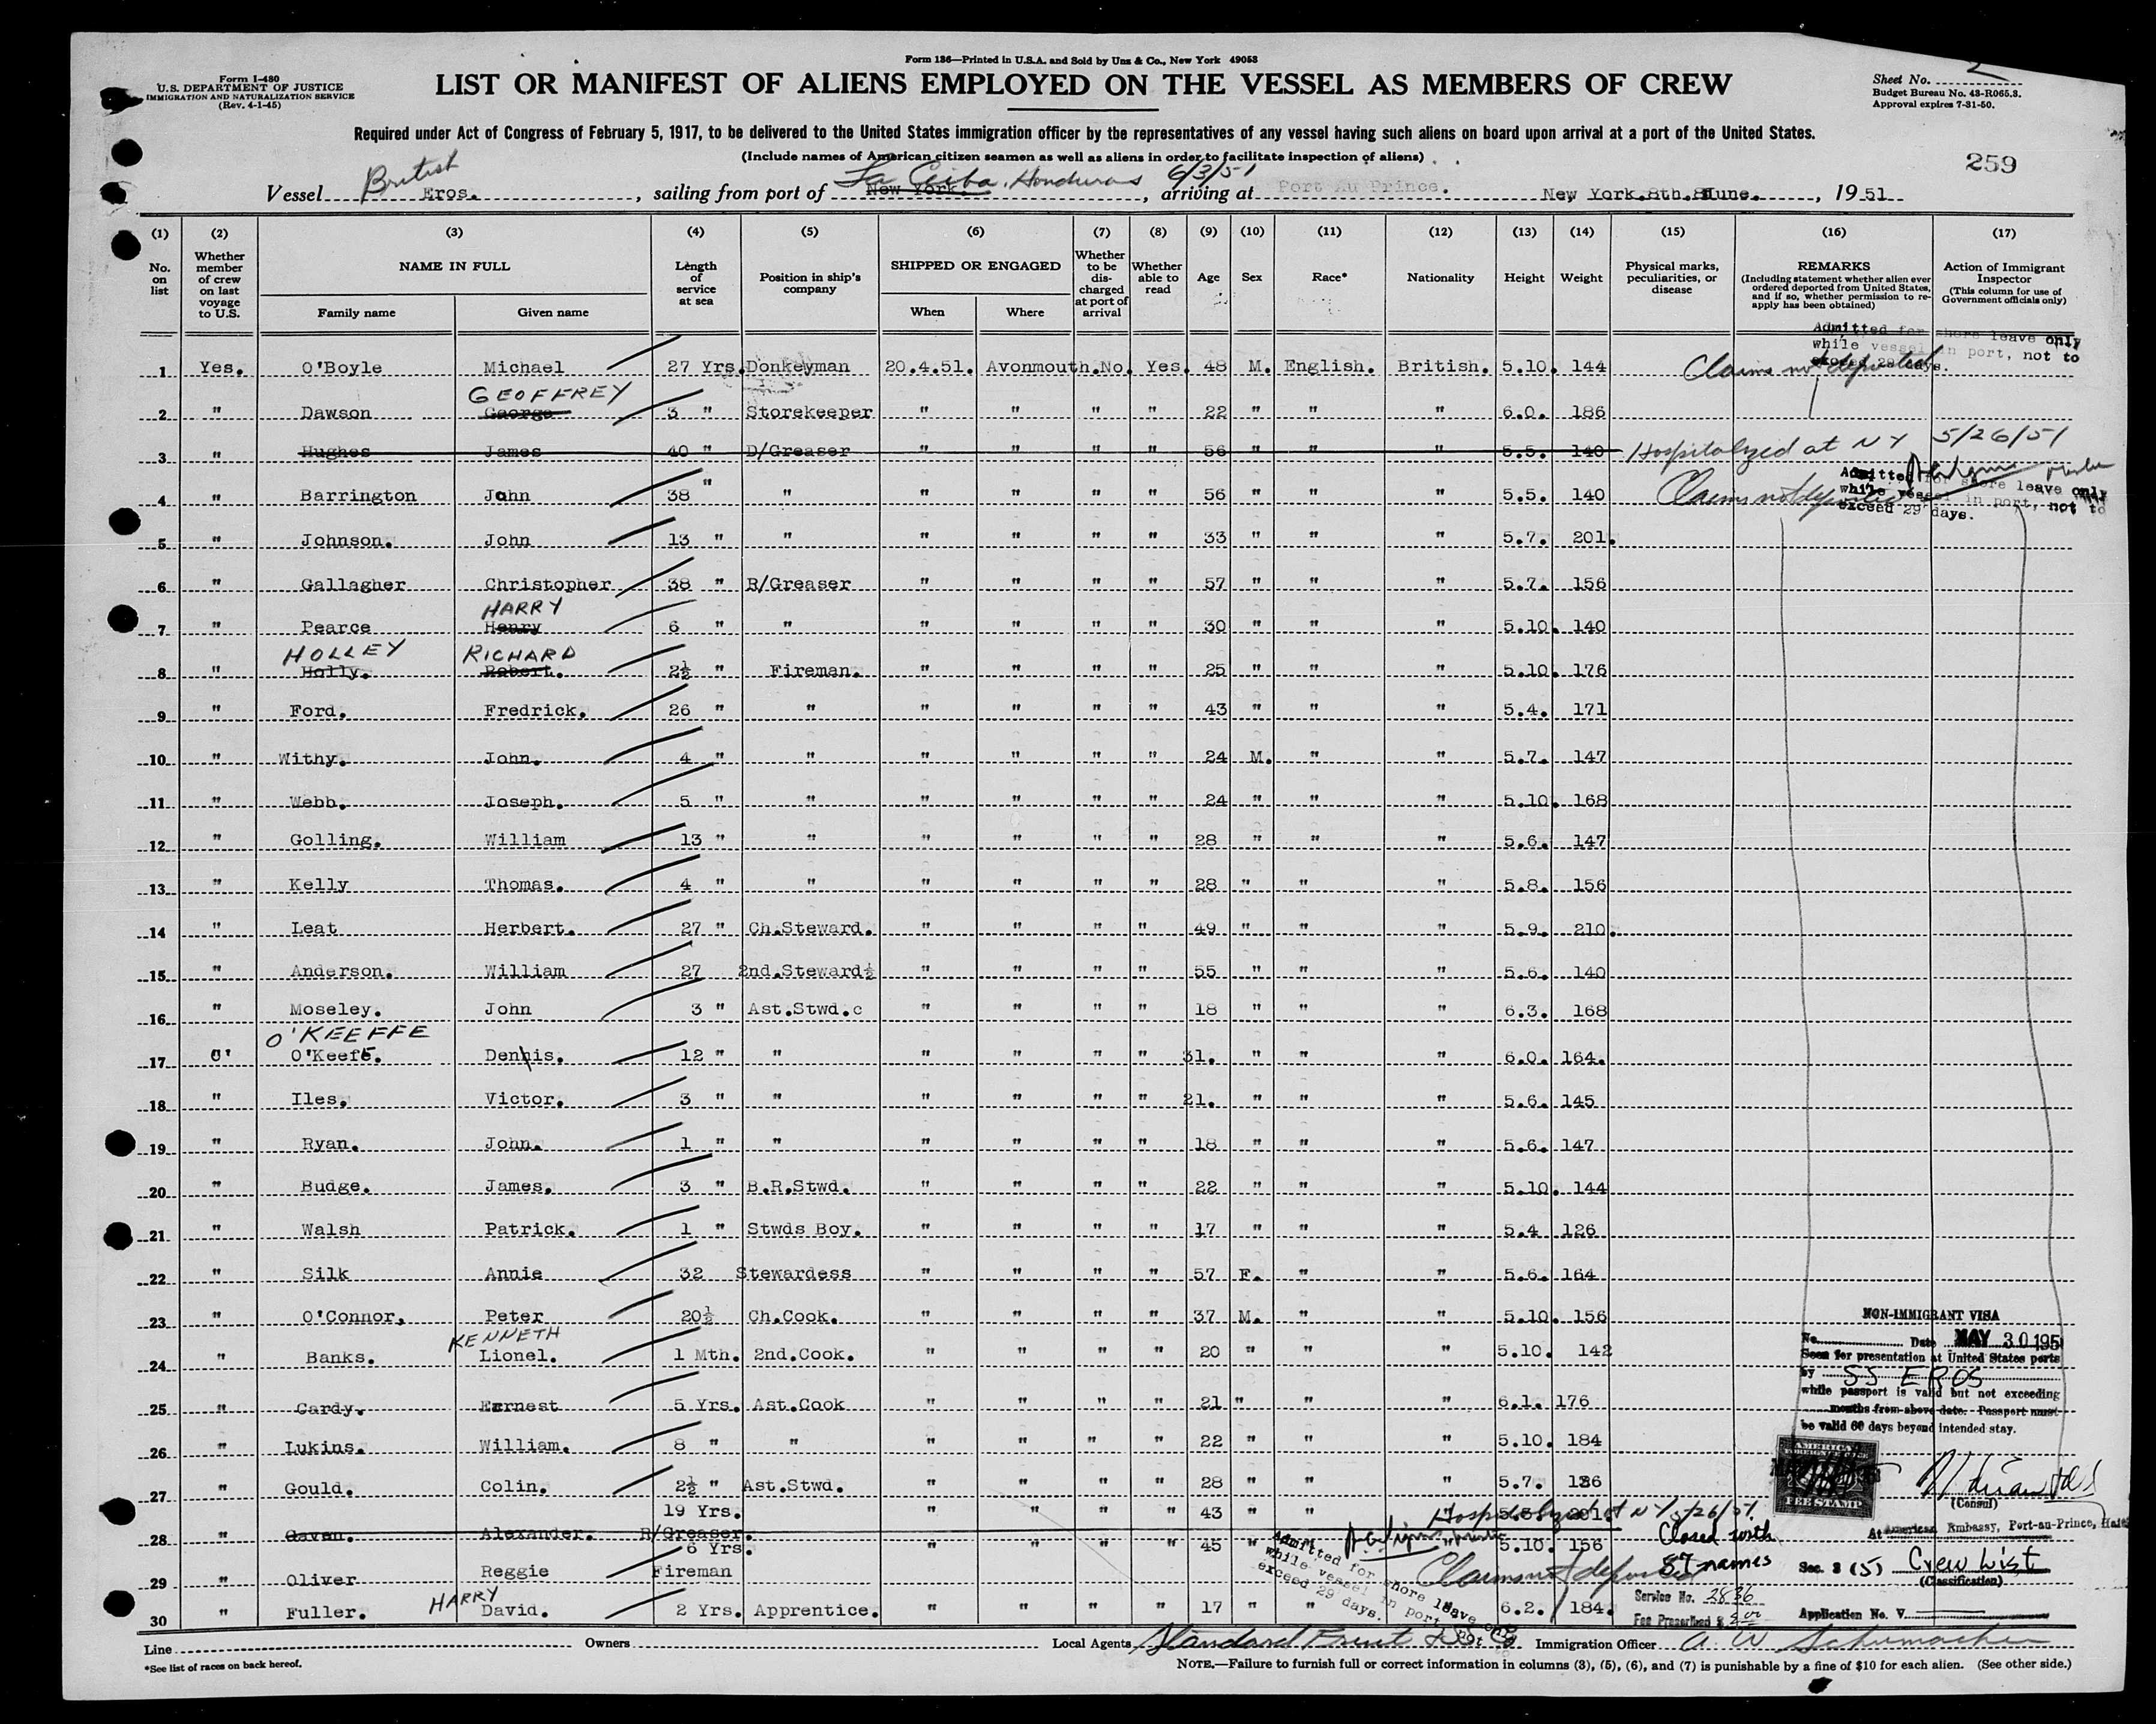 Form 136—Printed in U.S.A. and Sold by Unz & Co., New York 49053
Form I-480
U.S. DEPARTMENT OF JUSTICE
IMMIGRATION AND NATURALIZATION SERVICE
(Rev. 4-1-45)
LIST OR MANIFEST OF ALIENS EMPLOYED ON THE VESSEL AS MEMBERS OF CREW
Sheet No. 2
Budget Bureau No. 43-R065.3.
Approval expires 7-31-50.
Required under Act of Congress of February 5, 1917, to be delivered to the United States immigration officer by the representatives of any vessel having such aliens on board upon arrival at a port of the United States.
(Include names of American citizen seamen as well as aliens in order to facilitate inspection of aliens)
259
British La Ceiba, Honduras 6/3/51
Vessel Eros. , sailing from port of New York. , arriving at Port Au Prince. New York. 8th. June. , 19 51
(1) (2) (3) (4) (5) (6) (7) (8) (9) (10) (11) (12) (13) (14) (15) (16) (17)
No. on list
Whether member of crew on last voyage to U.S.
NAME IN FULL
Family name Given name
Length of service at sea
Position in ship's company
SHIPPED OR ENGAGED
When Where
Whether to be discharged at port of arrival
Whether able to read
Age Sex Race* Nationality Height Weight
Physical marks, peculiarities, or disease
REMARKS
(Including statement whether alien ever ordered deported from United States, and if so, whether permission to re-apply has been obtained)
Action of Immigrant Inspector
(This column for use of Government officials only)
Admitted for shore leave only
while vessel in port, not to
exceed 29 days.
1 Yes. O'Boyle Michael 27 Yrs. Donkeyman 20.4.51. Avonmouth. No. Yes. 48 M. English. British. 5.10. 144 Claims not deported
GEOFFREY
2 " Dawson George 3 " Storekeeper " " " " 22 " " " 6.0. 186
3 " Hughes James 40 " D/Greaser " " " " 56 " " " 5.5. 140 Hospitalized at NY 5/26/51
Admitted for shore leave only
while vessel in port, not to
exceed 29 days.
4 " Barrington John 38 " " " " " " 56 " " " 5.5. 140 Claims not deported
5 " Johnson. John 13 " " " " " " 33 " " " 5.7. 201.
6 " Gallagher Christopher 38 " R/Greaser " " " " 57 " " " 5.7. 156
HARRY
7 " Pearce Henry 6 " " " " " " 30 " " " 5.10. 140
HOLLEY RICHARD
8 " Holly. Robert. 2½ " Fireman. " " " " 25 " " " 5.10. 176
9 " Ford. Fredrick. 26 " " " " " " 43 " " " 5.4. 171
10 " Withy. John. 4 " " " " " " 24 M. " " 5.7. 147
11 " Webb. Joseph. 5 " " " " " " 24 " " " 5.10. 168
12 " Golling. William 13 " " " " " " 28 " " " 5.6. 147
13 " Kelly Thomas. 4 " " " " " " 28 " " " 5.8. 156
14 " Leat Herbert. 27 " Ch.Steward. " " " " 49 " " " 5.9. 210.
15 " Anderson. William 27 2nd.Steward½ " " " " 55 " " " 5.6. 140
16 " Moseley. John 3 " Ast.Stwd.c " " " " 18 " " " 6.3. 168
O'KEEFFE
17 " O'Keefe. Dennis. 12 " " " " " " 31. " " " 6.0. 164.
18 " Iles. Victor. 3 " " " " " " 21. " " " 5.6. 145
19 " Ryan. John. 1 " " " " " " 18 " " " 5.6. 147
20 " Budge. James. 3 " B.R.Stwd. " " " " 22 " " " 5.10. 144
21 " Walsh Patrick. 1 " Stwds Boy. " " " " 17 " " " 5.4 126
22 " Silk Annie 32 Stewardess " " " " 57 F. " " 5.6. 164
23 " O'Connor, Peter 20½ Ch.Cook. " " " " 37 M. " " 5.10. 156
KENNETH
24 " Banks. Lionel. 1 Mth. 2nd.Cook. " " " " 20 " " " 5.10. 142
25 " Cardy. Ernest 5 Yrs. Ast.Cook " " " " 21 " " " 6.1. 176
26 " Lukins. William. 8 " " " " " " 22 " " " 5.10. 184
27 " Gould. Colin. 2½ " Ast.Stwd. " " " " 28 " " " 5.7. 136
28 " Gaven. Alexander. 19 Yrs. R/Greaser. " " " " 43 " " Hospitalized at NY 5/26/51.
29 " Oliver Reggie 6 Yrs. Fireman " " " " 45 " 5.10. 156 Claims not deported
HARRY
30 " Fuller. David. 2 Yrs. Apprentice. " " " " 17 " " 6.2. 184.
Admitted for shore leave only
while vessel in port
exceed 29 days.
NON-IMMIGRANT VISA
No. Date MAY 30 195
Seen for presentation at United States ports
by SS EROS
while passport is valid but not exceeding
months from above date. Passport must
be valid 60 days beyond intended stay.
AMERICAN
FEE STAMP
(Consul)
At American Embassy, Port-au-Prince, Haiti
Closed with
87 names
Sec. 3 (5) Crew List
(Classification)
Service No. 2836
Fee Prescribed $
Application No. V
Line Owners Local Agents Standard Fruit & SS Co Immigration Officer A. W. Schumacher
*See list of races on back hereof.
NOTE.—Failure to furnish full or correct information in columns (3), (5), (6), and (7) is punishable by a fine of $10 for each alien. (See other side.)